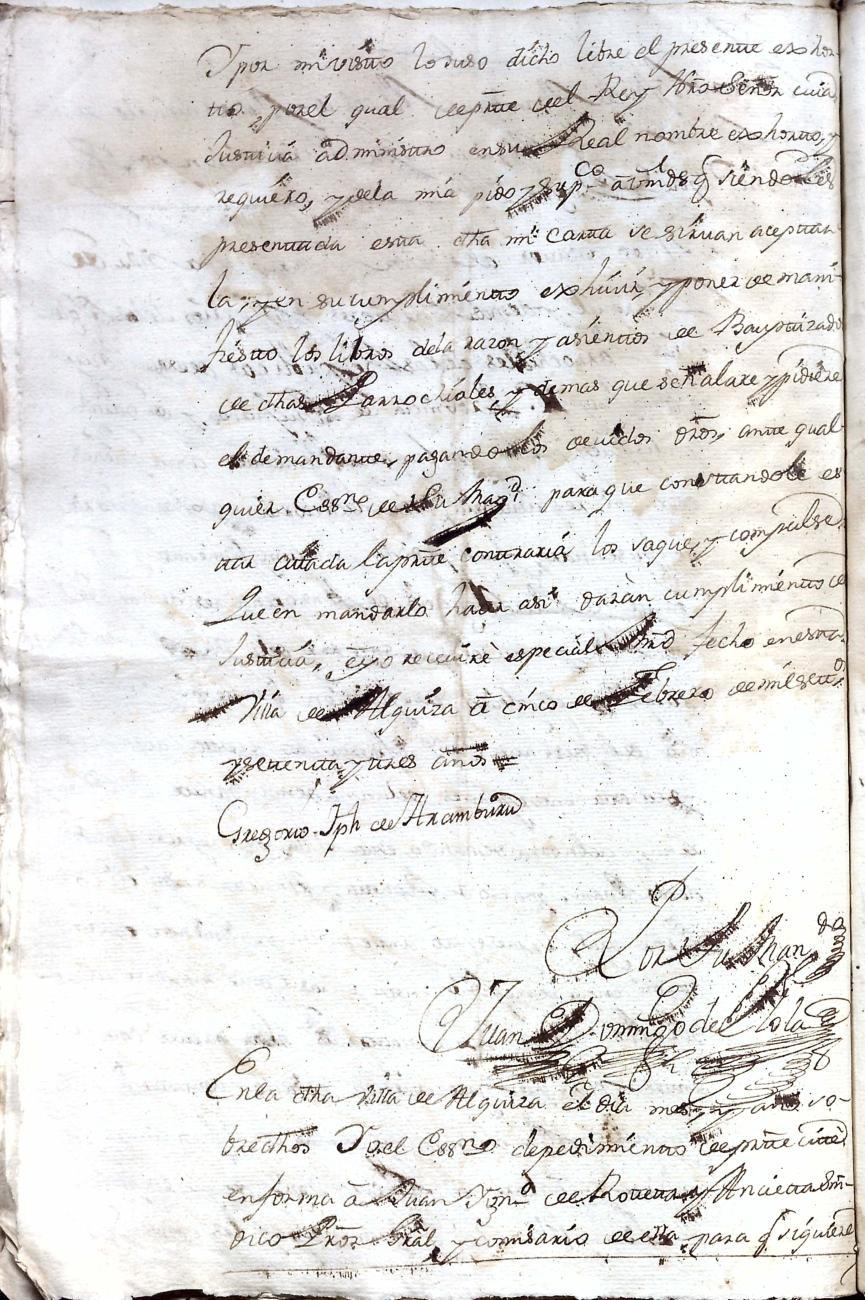 Y por mi visto lo suso dicho libre el presente exhor-
tto, por el qual de prtte del Rey Nro Señor cuia
Justicia administro en su Real nombre exhortto, y
requiero, y de la mia pido y supco a vmds q siendoles
presenttada estta dha mi cartta se sirvan aceptar-
la, y en su cumplimientto exhivir, y poner de mani-
fiestto los libros de la razon y asienttos de Bapttizados
de dhas Parrochiales, y demas que señalare y pidiere
el demandantte, pagando los devidos dros, antte qual-
quier Essno de su Magd para que consttandole es-
ttar cittada la prtte conttraria los saque, y compulse
Que en mandarlo hacer asi daràn cumplimientto de
Justticia, e yo recevirè especial mrd fecho en estta
Villa de Alquiza â cinco de Febrero de mil settos
y settentta y ttres años =
Gregorio Jph de Aramburu
Por Su Mando
Juan Domingo de
En la dha villa de Alquiza el dia mes y año so-
bredhos Yo el Essno de pedimientto de prtte cittè
en forma â Juan Ignº de Rovetta y Ancietta Sin-
dico Pror Gral y comisario de ella para q siguiere